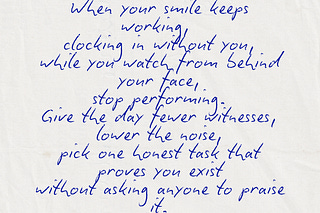 When your smile keeps
working,
clocking in without you,
while you watch from behind
your face,
stop performing.
Give the day fewer witnesses,
lower the noise,
pick one honest task that
proves you exist
without asking anyone to praise
it.